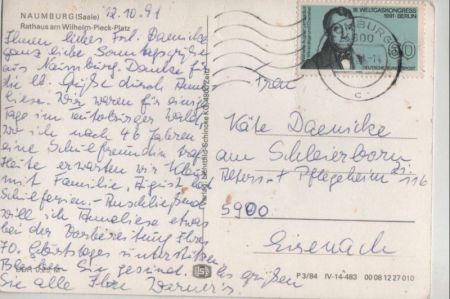 NAUMBURG (Saale)
Rathaus am Wilhelm-Pieck-Platz
12.10.91
Ihnen, liebes Frl. Daenicke
ganz liebe Sonntagsgrüße
aus Naumburg. Danke für
die lb. Grüße durch Anne-
liese. Wir waren für einige
Tage im
wo ich nach 46 Jahren
eine Schulfreundin traf.
Heute erwarten wir
mit Familie
will ich Anneliese etwas
bei der Vorbereitung Ihres
70. Geburtstages unterstützen
Bleiben Sie gesund. Es grüßen
Sie alle Ihre Werner's
DDR
Verlag Lichtbild-Schincke KG, 4900 Zeitz
III. WELTGASKONGRESS
1991 · BERLIN
60
DEUTSCHE BUNDESPOST
NAUMBURG
4800
c
Frau
Käte Daenicke
am Schleierborn
Pflegeheim 116
5900
Eisenach
P 3/84 IV-14-483 00 08 12 27 010